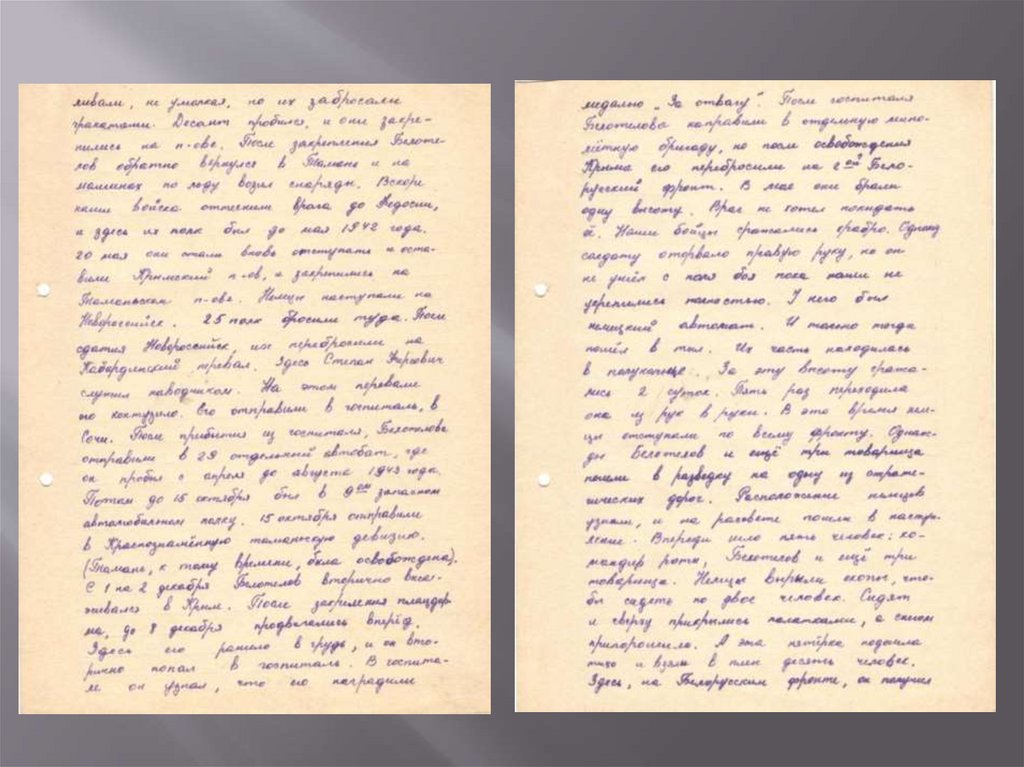 ливали, не умолкая, но их забросали
гранатами. Десант пробился, и они закре-
пились на п-ове. После закрепления Белоте-
лов обратно вернулся в Тамань и на
машинах по льду возил снаряды. Вскоре
наши войска оттеснили врага до Федосии,
и здесь их полк был до мая 1942 года.
20 мая они стали вновь отступать и оста-
вили Крымский п-ов, и закрепились на
Таманьском п-ове. Немцы наступали на
Новороссийск. 25 полк бросили туда. После
сдатия Новороссийск, их перебросили на
Кабардинский перевал. Здесь Степан
служил наводчиком. На этом перевале
его контузило. Его отправили в госпиталь, в
Сочи. После прибытия из госпиталя, Белотелова
отправили в 29 отдельный автобат, где
он пробыл с апреля до августа 1943 года.
Потом до 15 октября был в 9ом запасном
автомобильном полку. 15 октября отправили
в Краснознамённую таманьскую девизию.
(Тамань, к тому времени, была освобождена).
С 1 на 2 декабря Белотелов вторично выса-
живался в Крым. После закрепления плацдар-
ма, до 8 декабря продвигались вперёд.
Здесь его ранило в грудь, и он вто-
рично попал в госпиталь. В госпита-
ле он узнал, что его наградили
медалью „За отвагу". После госпиталя
Белотелова направили в отдельную мино-
мётную бригаду, но после освобождения
Крыма его перебросили на 2ой Бело-
русский фронт. В мае они брали
одну высоту. Враг не хотел покидать
её. Наши бойцы сражались храбро. Одному
солдату оторвало правую руку, но он
не ушёл с поля боя пока наши не
укрепились полностью. У него был
немецкий автомат. И только тогда
пошёл в тыл. Их часть находилась
в полукольце. За эту высоту сража-
лись 2 суток. Пять раз переходила
она из рук в руки. В это время нем-
цы отступали по всему фронту. Однаж-
ды Белотелов и ещё три товарища
пошли в разведку на одну из страте-
гических дорог. Расположение немцев
узнали, и на рассвете пошли в наступ-
ление. Впереди шло пять человек: ко-
мандир роты, Белотелов и ещё три
товарища. Немцы вырыли окопы, что-
бы сидеть по двое человек. Сидят
и сверху прикрылись палатками, а снегом
припорошило. А эта пятёрка подошла
тихо и взяли в плен десять человек.
Здесь, на Белорусском фронте, он получил